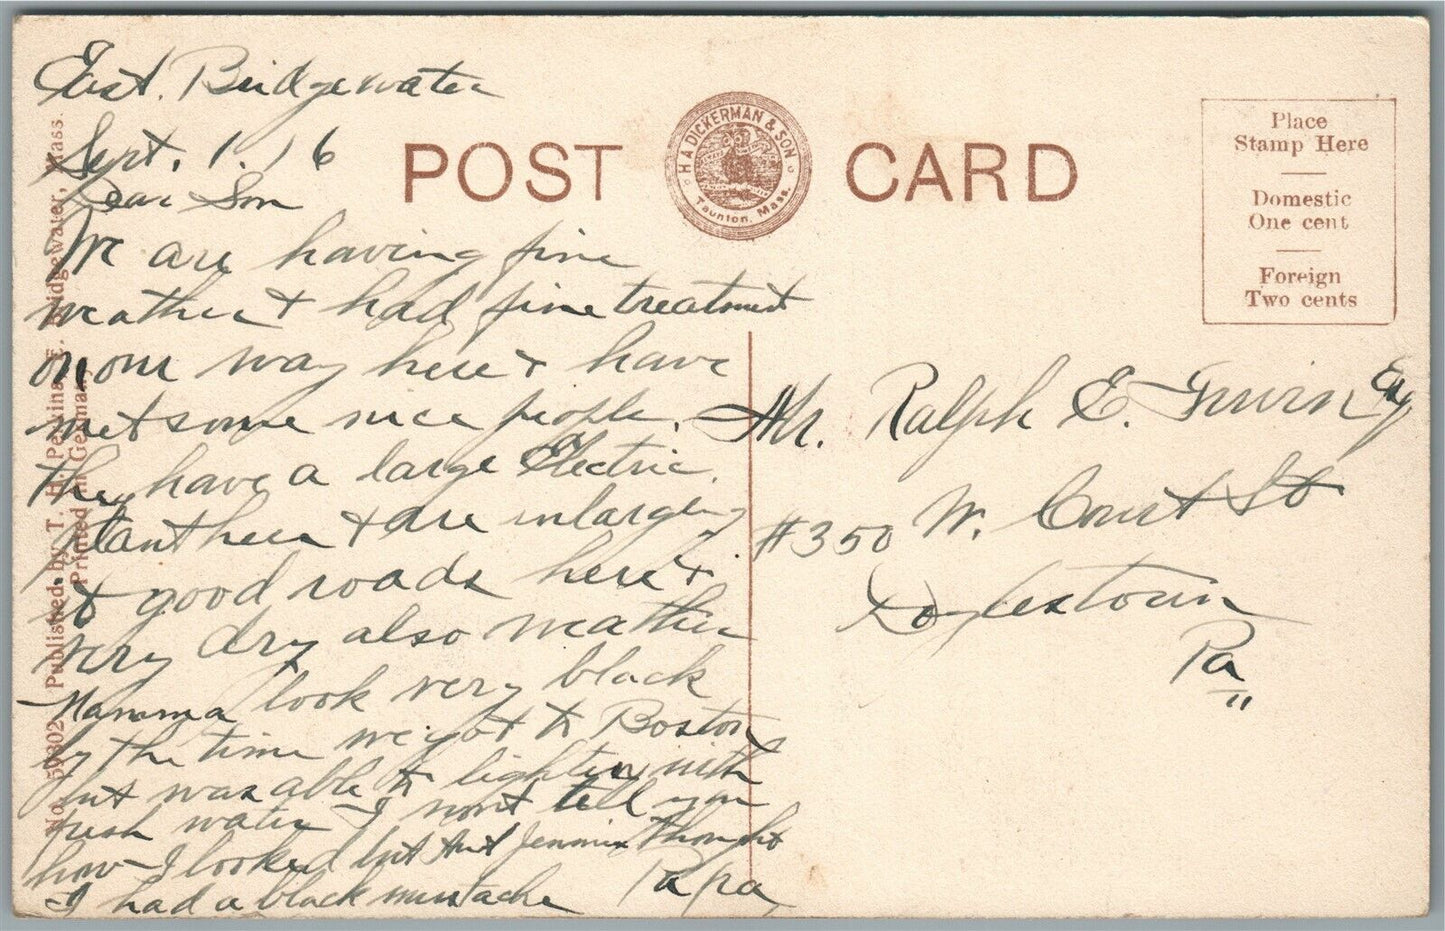 East. Bridgewater
Sept. 1. 16
Dear Son
We are having fine
weather & had fine treatment
on our way here & have
met some nice people.
they have a large Electric
Plant here & are inlarging
it good roads here &
very dry also weather
Mamma look very black
by the time we got to Boston
but was able to lighten with
fresh water - I wont tell you
how - I looked but Aunt Jennie Thought
I had a black mustache
Papa
POST CARD
H A DICKERMAN & SON
Taunton, Mass.
Place
Stamp Here
Domestic
One cent
Foreign
Two cents
Mr. Ralph E. Irwin Esq
#350 W. Court St
Doylestown
Pa
No. 59802 Published by T. H. Perkins, E. Bridgewater, Mass.
Printed in Germany